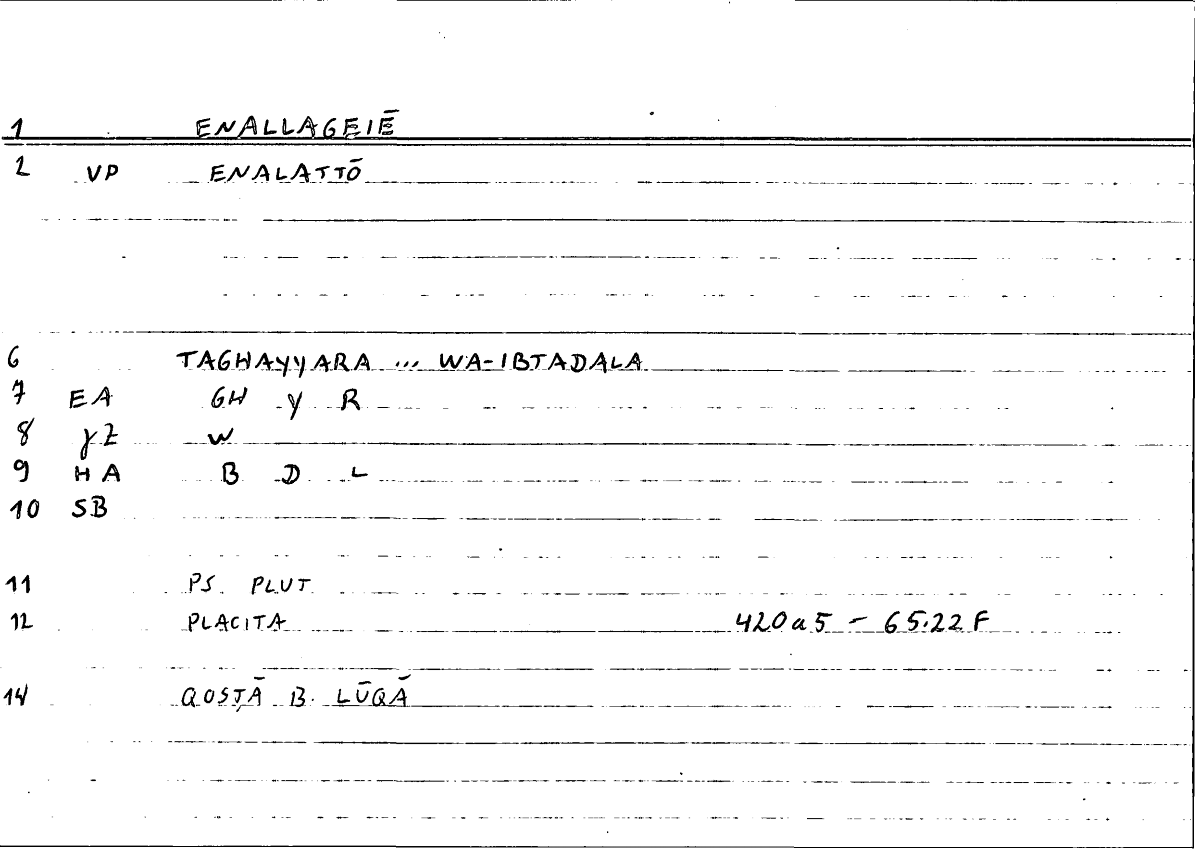 1 ENALLAGEIĒ
2 VP ENALATTŌ
6 TAGHAYYARA ... WA-IBTADALA
7 EA GH Y R
8 YZ W
9 HA B D L
10 SB
11 PS. PLUT.
12 PLACITA 420a5 - 65.22 F
14 QOSṬĀ B. LŪQĀ